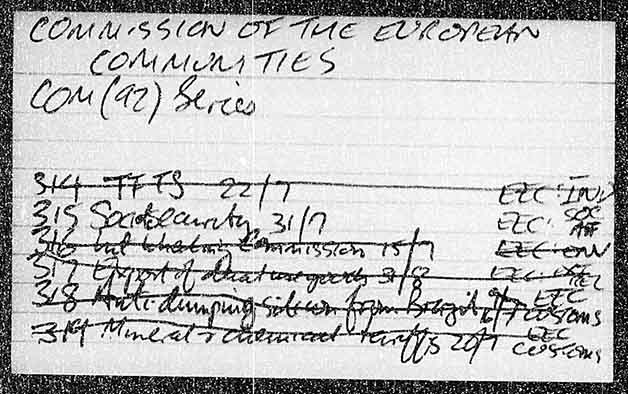 COMMISSION OF THE EUROPEAN
COMMUNITIES
COM(92) Series
314 TFTS 22/7 EEC: IND
315 Social Security 31/7 EEC: SOC AFF
316 Commission 15/7 EEC: ENV
317 Export of goods 31/8 EEC:
318 Anti dumping silicon from Brazil EEC customs
319 Mineral & chemical tariffs 20/7 EEC customs